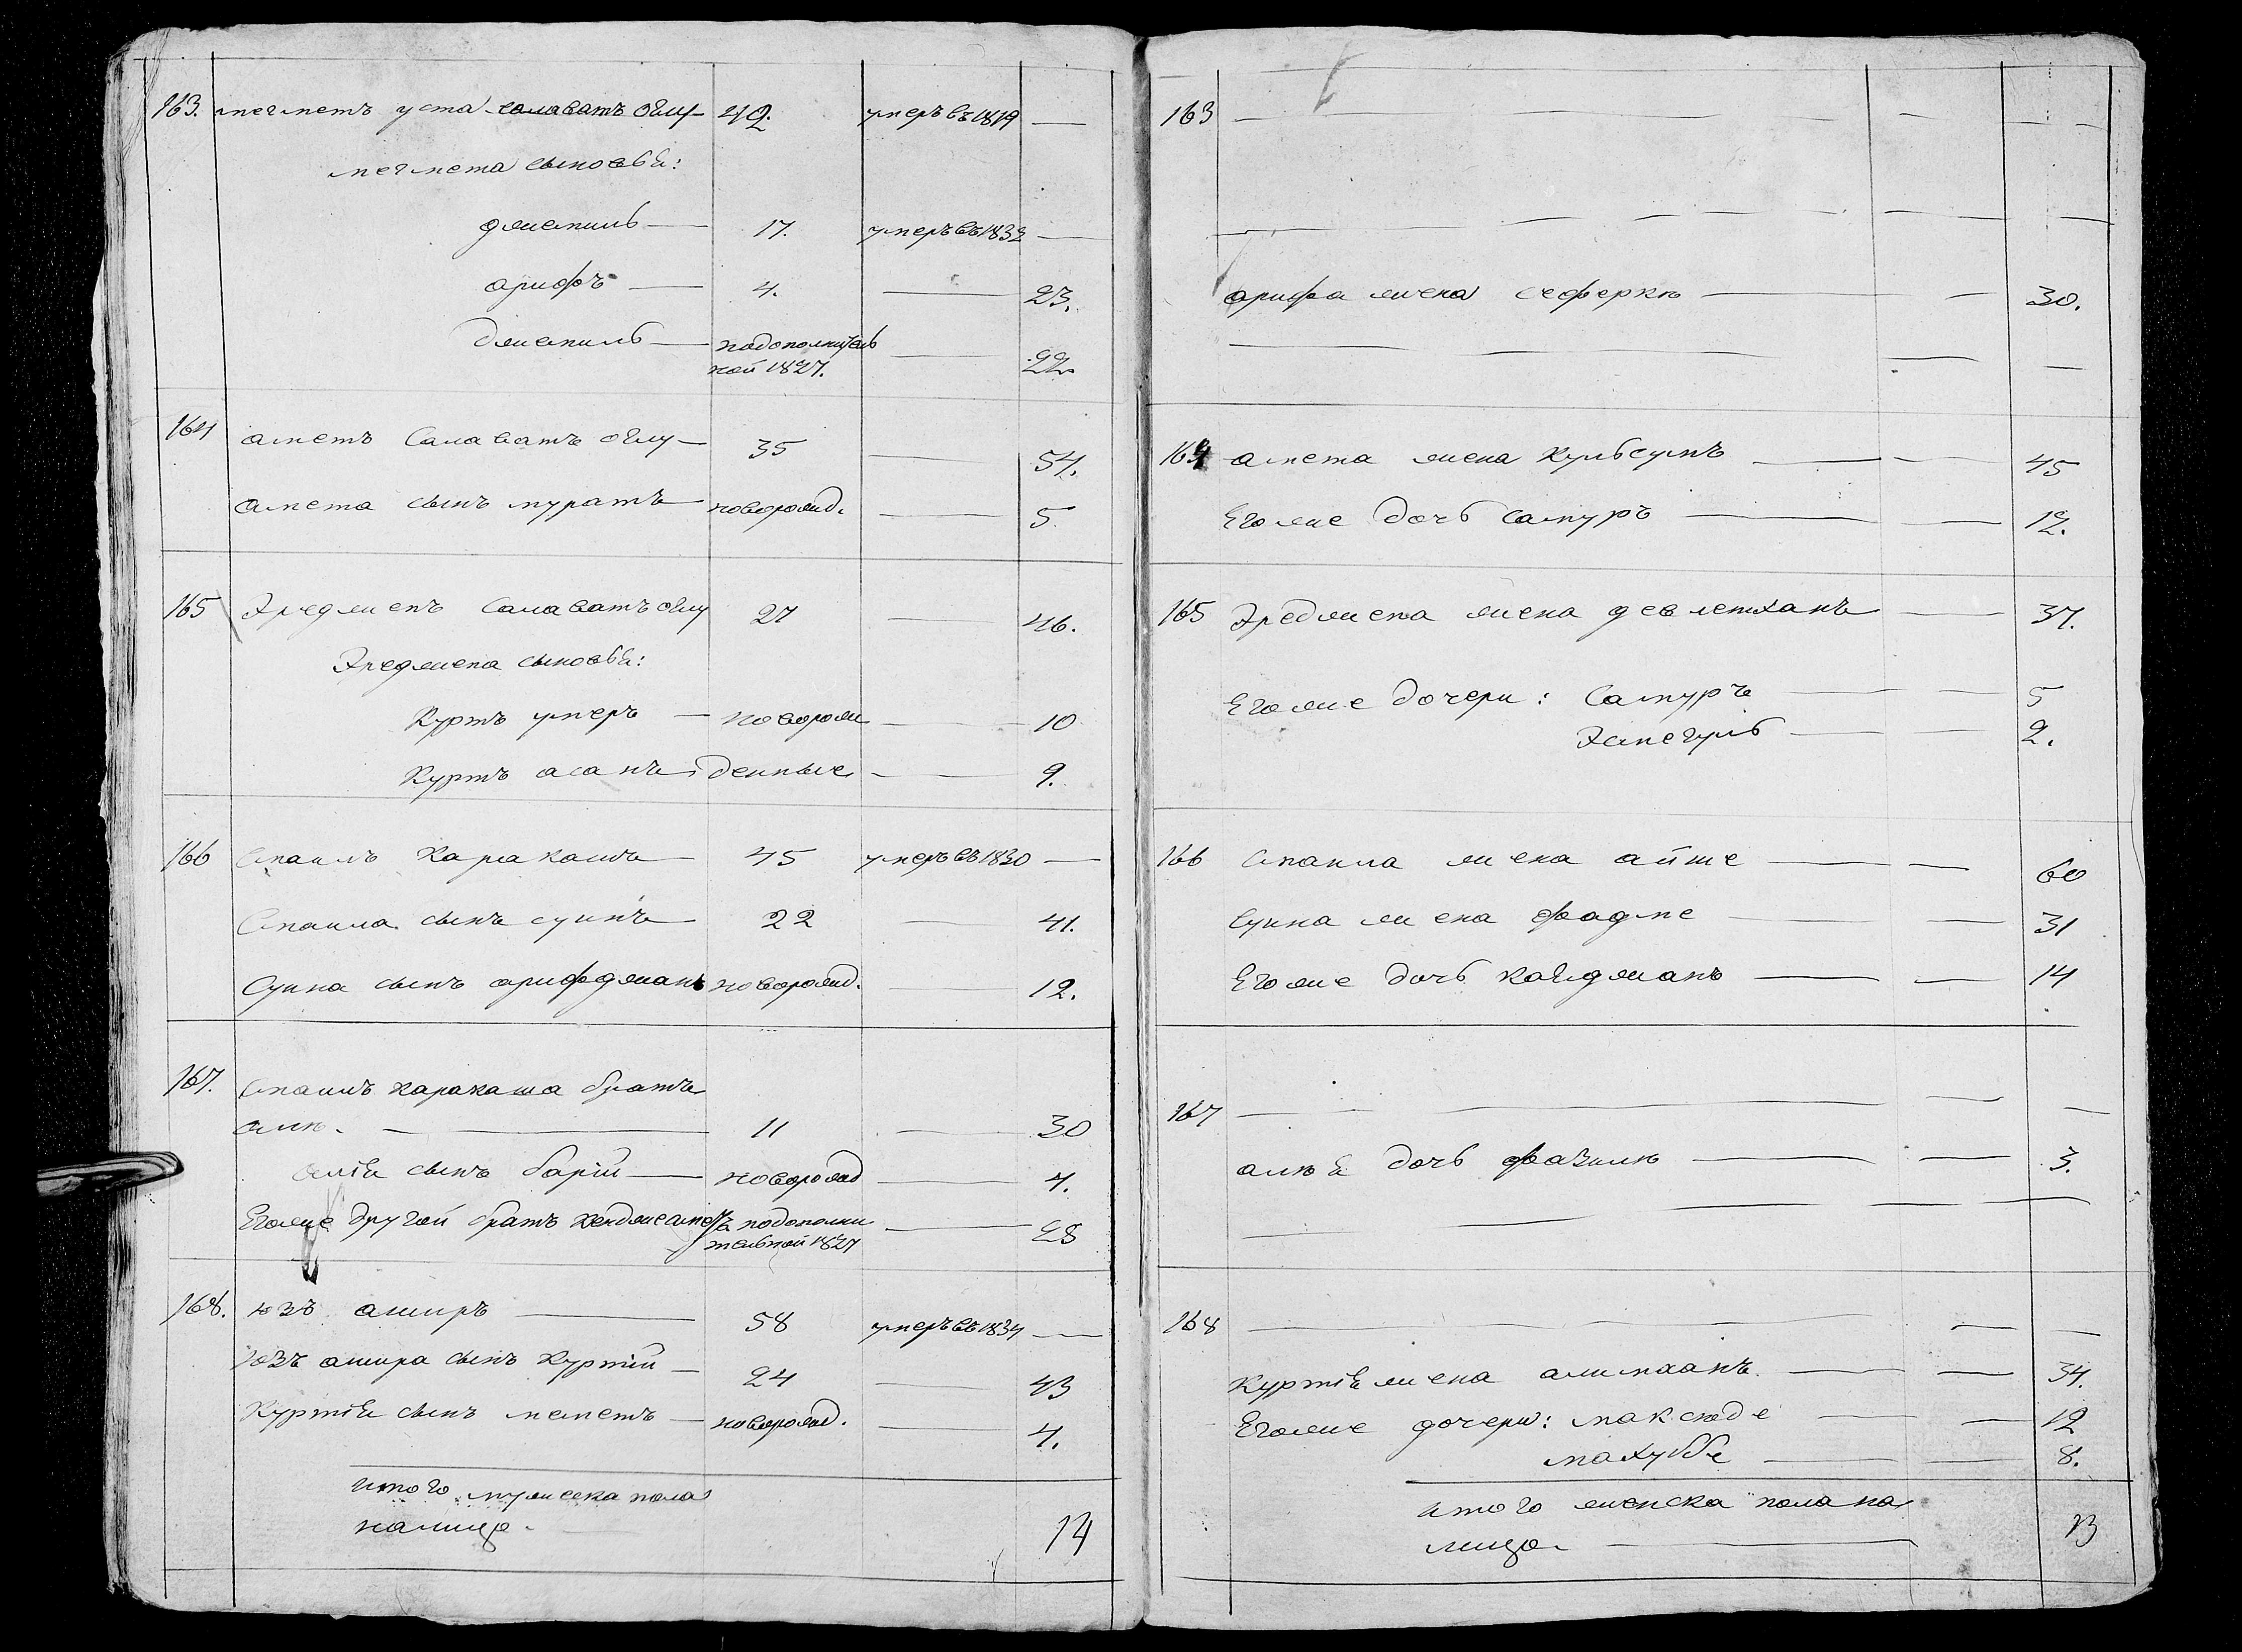 163. мегметъ уста салаватъ оглу 42. умеръ въ 1819 —
мегмета сыновья:
джемиль — 17. умеръ въ 1832 —
арифъ — 4. — 23.
джемиль — подополнитель
ной 1827. — 22.
164 аметъ Салаватъ оглу — 35 — 54.
амета сынъ муратъ новорожд. — 5.
165 Эреджепъ Салаватъ оглу 27 — 46.
Эреджепа сыновья:
Куртъ умеръ — новорож — 10
Куртъ асанъ денные — 9.
166 Смаилъ Каракашъ — 45 умеръ въ 1830 —
Смаила сынъ суинъ 22 — 41.
Суина сынъ арифджанъ новорожд. — 12.
167. Смаилъ каракаша братъ
али. — 11 — 30
алія сынъ барій — новорожд — 4.
Егоже другой братъ подополни — 28
тельной 1827
168. юзъ амиръ — 58 умеръ въ 1834 —
юзъ амира сынъ Куртій — 24 — 43
Куртія сынъ меметъ — новорожд. — 4.
итого мужеска пола
налицо. 14
163 — — —
— — —
арифа жена сеферки — — 30.
— — —
164 амета жена Кульсумъ — — 45
Егоже дочь Самуръ — — 12.
165 Эреджепа жена девлетханъ — 37.
Егоже дочери: Самуръ — — 5
Эсмегуль — — 2.
166 Смаила жена айше — — 60
Суина жена фадме — — 31
Егоже дочь — — 14
167 — — —
алія дочь фазили — — 3.
— — —
168 — — —
Куртія жена алимханъ. — — 34.
Егоже дочери: максюде — — 12
махуббе — — 8.
итого женска пола на
лицо. — 13